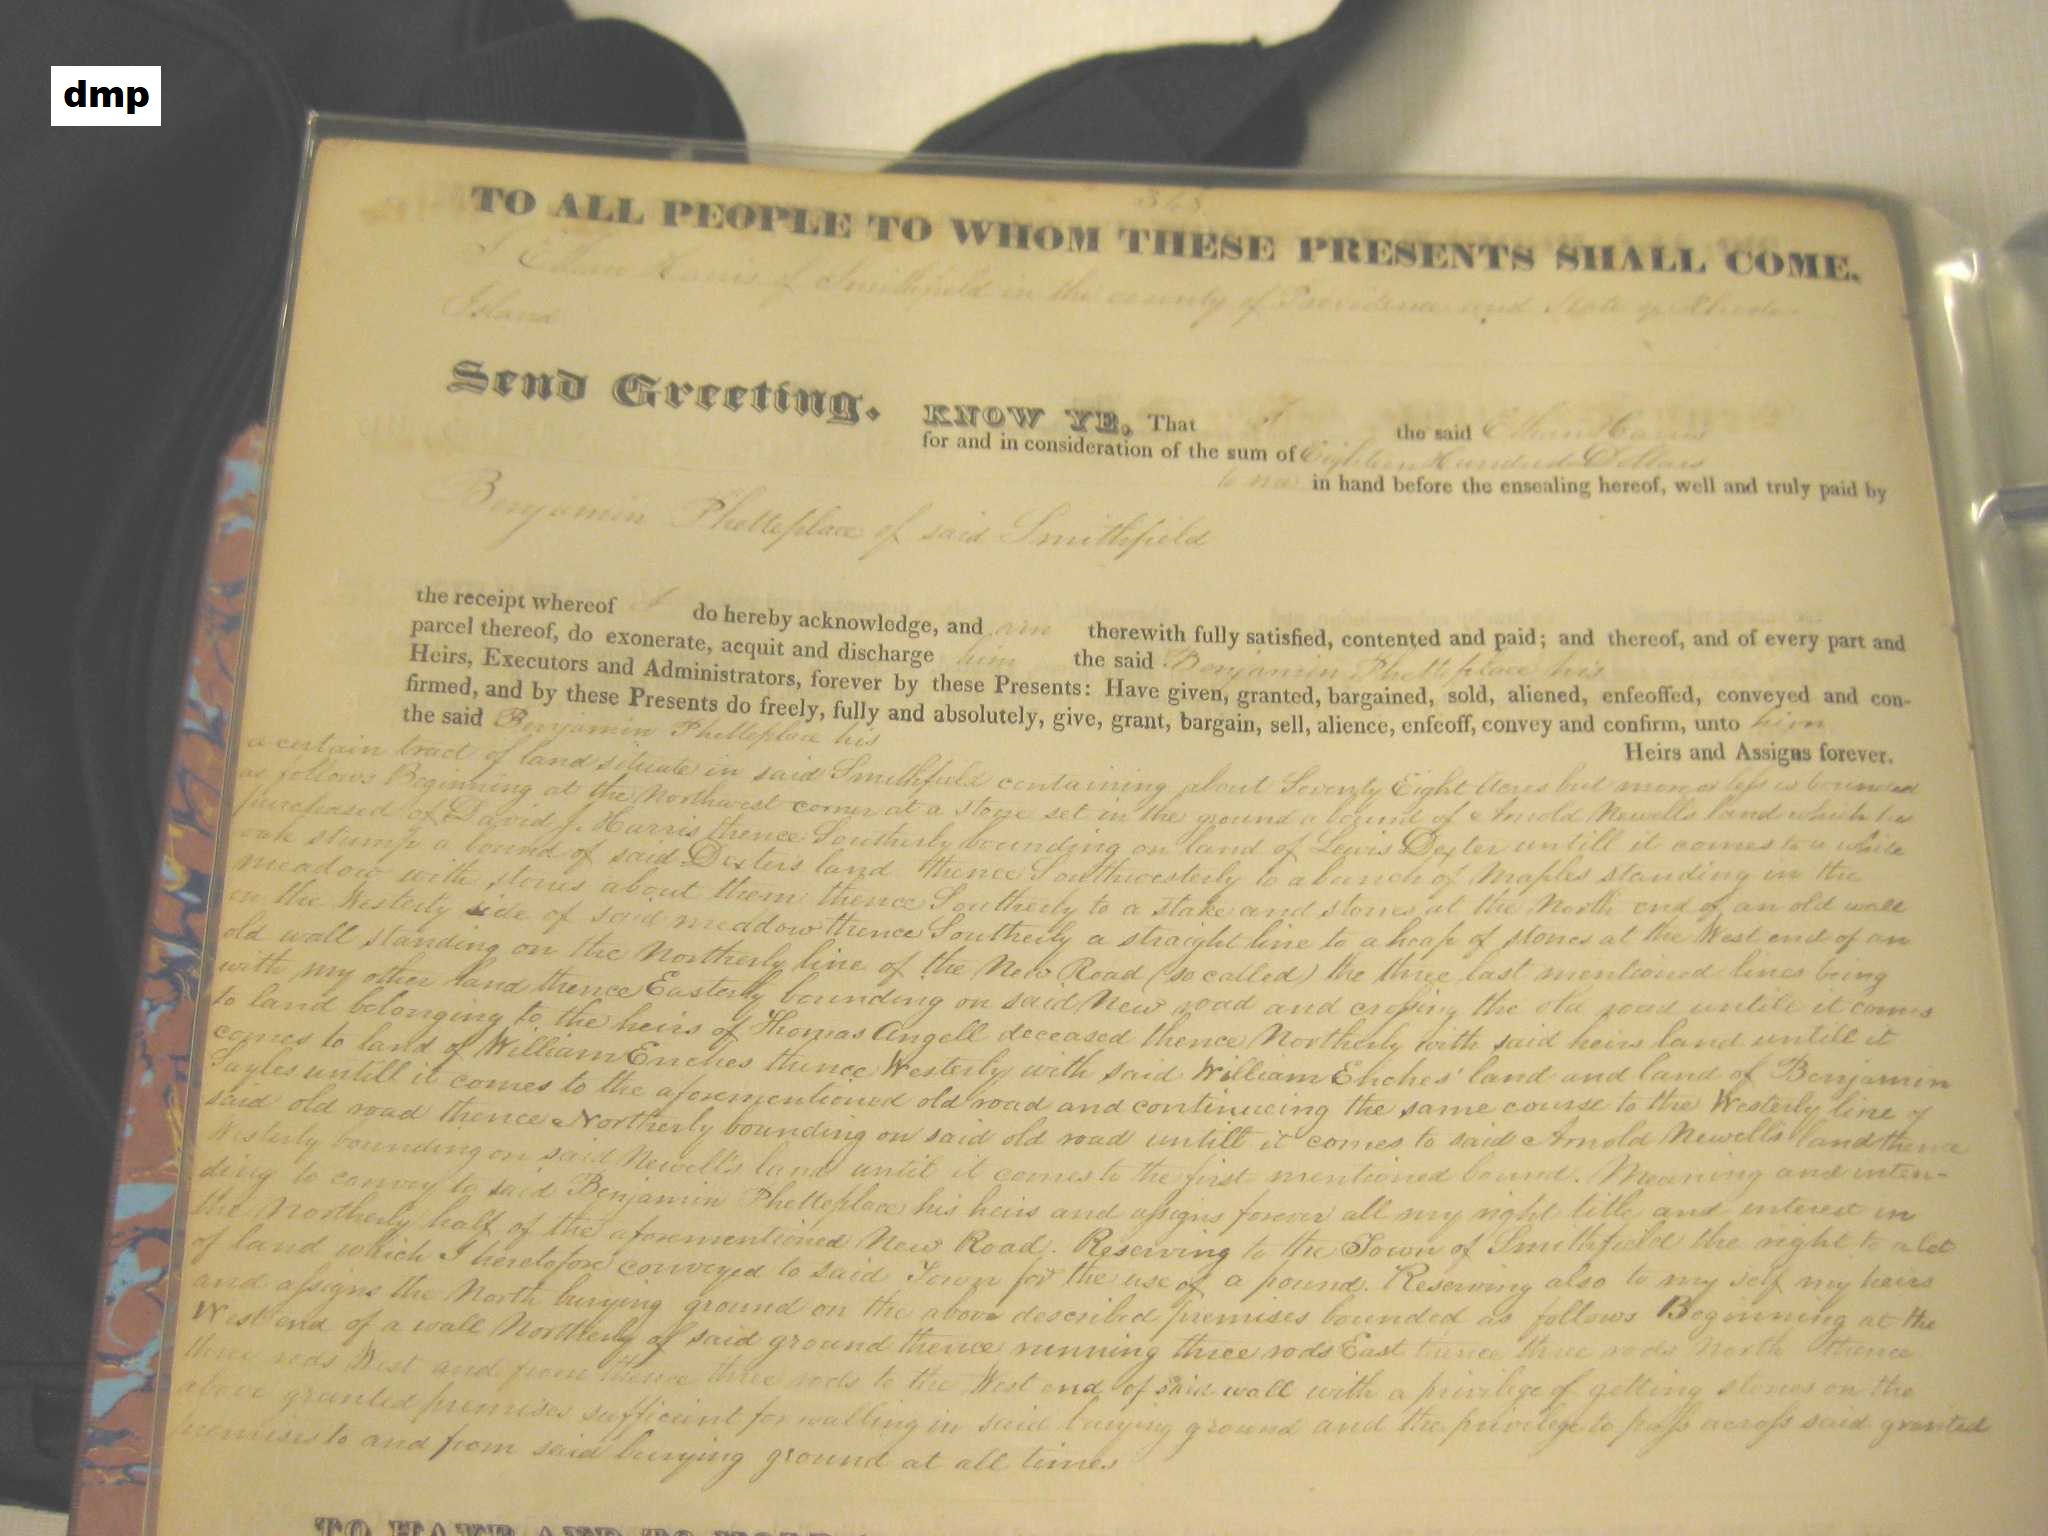 dmp
368
TO ALL PEOPLE TO WHOM THESE PRESENTS SHALL COME.
I Ethan Harris of Smithfield in the county of Providence and State of Rhode
Island
Send Greeting. KNOW YE, That I the said Ethan Harris
for and in consideration of the sum of Eighteen Hundred Dollars
to me in hand before the ensealing hereof, well and truly paid by
Benjamin Phetteplace of said Smithfield
the receipt whereof I do hereby acknowledge, and am therewith fully satisfied, contented and paid; and thereof, and of every part and
parcel thereof, do exonerate, acquit and discharge him the said Benjamin Phetteplace his
Heirs, Executors and Administrators, forever by these Presents: Have given, granted, bargained, sold, aliened, enfeoffed, conveyed and con-
firmed, and by these Presents do freely, fully and absolutely, give, grant, bargain, sell, alience, enfeoff, convey and confirm, unto him
the said Benjamin Phetteplace his
Heirs and Assigns forever.
a certain tract of land situate in said Smithfield containing about Seventy Eight Acres but more or less is bounded
as follows Beginning at the Northwest corner at a stone set in the ground a bound of Arnold Newells land which he
purchased of David J. Harris thence Southerly bounding on land of Lewis Dexter untill it comes to a white
oak stump a bound of said Dexters land thence Southwesterly to a bunch of Maples standing in the
meadow with stones about them thence Southerly to a stake and stones at the North end of an old wall
on the Westerly side of said meaddow thence Southerly a straight line to a heap of stones at the West end of an
old wall standing on the Northerly line of the New Road (so called) the three last mentioned lines being
with my other land thence Easterly bounding on said New road and crossing the old road untill it comes
to land belonging to the heirs of Thomas Angell deceased thence Northerly with said heirs land untill it
comes to land of William Enches thence Westerly with said William Enches' land and land of Benjamin
Sayles untill it comes to the aforementioned old road and continueing the same course to the Westerly line of
said old road thence Northerly bounding on said old road untill it comes to said Arnold Newells land thence
Westerly bounding on said Newell's land until it comes to the first mentioned bound. Meaning and inten-
ding to convey to said Benjamin Phetteplace his heirs and assigns forever all my right title and interest in
the Northerly half of the aforementioned New Road. Reserving to the Town of Smithfield the right to a lot
of land which I heretofore conveyed to said Town for the use of a pound. Reserving also to my self my heirs
and assigns the North burying ground on the above described premises bounded as follows Beginning at the
West end of a wall Northerly of said ground thence running three rods East thence three rods North thence
three rods West and from thence three rods to the West end of said wall with a privilege of getting stones on the
above granted premises sufficient for walling in said burying ground and the privilege to pass across said granted
premises to and from said burying ground at all times
TO HAVE AND TO HOLD